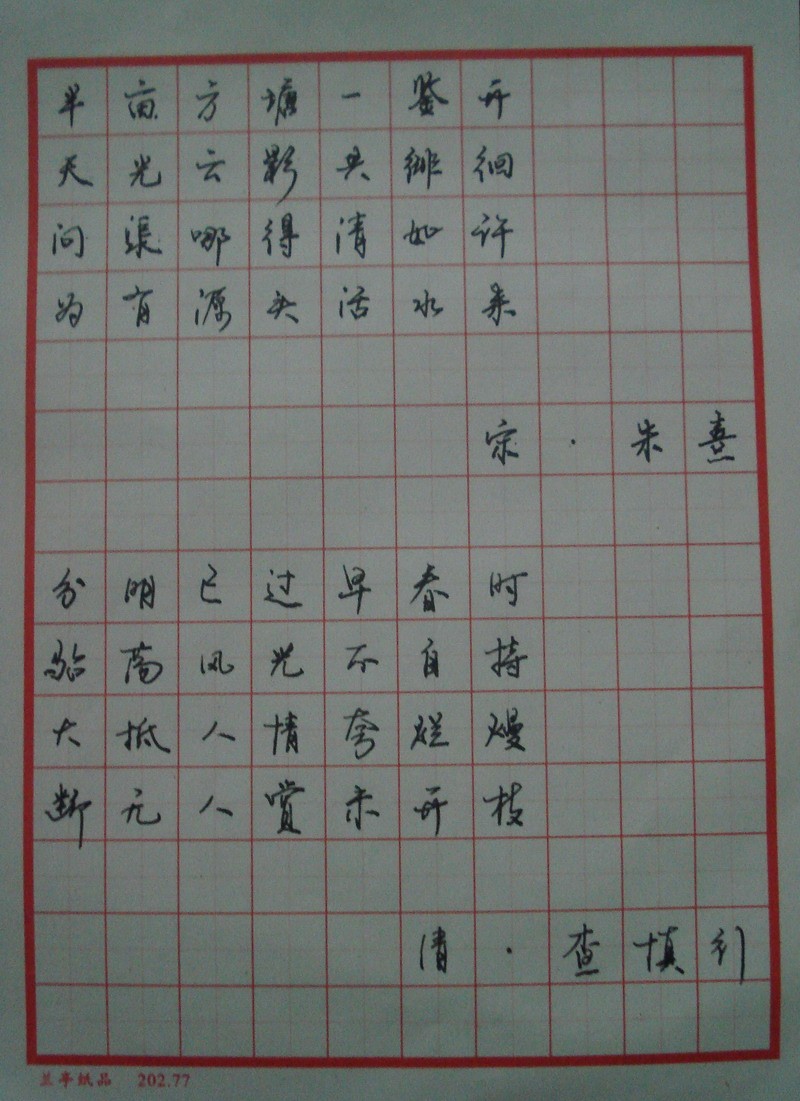 半亩方塘一鉴开
天光云影共徘徊
问渠哪得清如许
为有源头活水来
宋·朱熹
分明已过早春时
骀荡风光不自持
大抵人情夸烂熳
断无人赏未开枝
清·查慎行
兰亭纸品 202.77